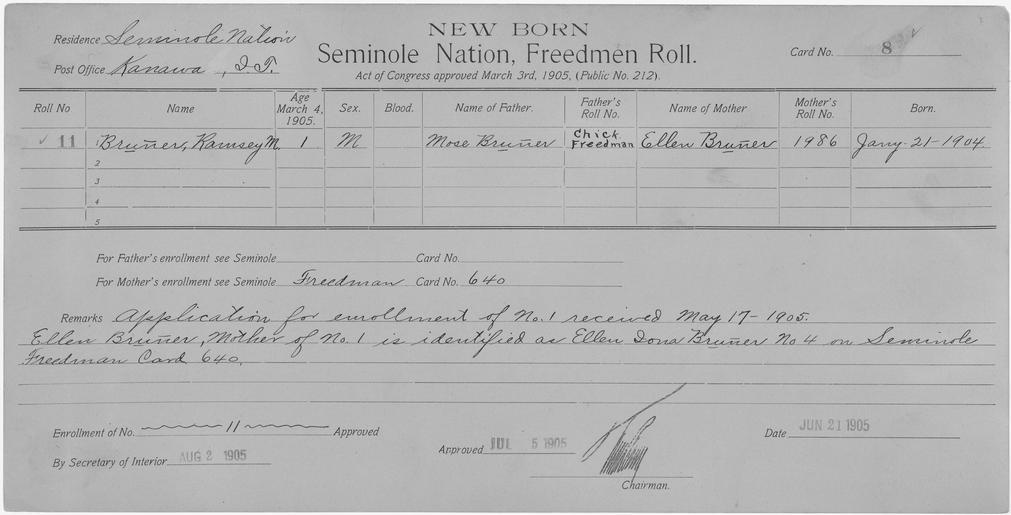 NEW BORN
Seminole Nation, Freedmen Roll.
Act of Congress approved March 3rd, 1905, (Public No. 212).
Residence Seminole Nation
Post Office Kanawa, I.T.
Card No. 8
Roll No Name Age March 4, 1905. Sex. Blood. Name of Father. Father's Roll No. Name of Mother Mother's Roll No. Born.
✓ 11 1 Bruner, Ramsey M. 1 M Mose Bruner Chick. Freedman Ellen Bruner 1986 Jany-21-1904
2
3
4
5
For Father's enrollment see Seminole Card No.
For Mother's enrollment see Seminole Freedman Card No. 640
Remarks Application for enrollment of No. 1 received May 17-1905.
Ellen Bruner, Mother of No. 1 is identified as Ellen Dona Bruner No 4 on Seminole
Freedman Card 640.
Enrollment of No. 11 Approved
By Secretary of Interior AUG 2 1905
Approved JUL 5 1905
Chairman.
Date JUN 21 1905